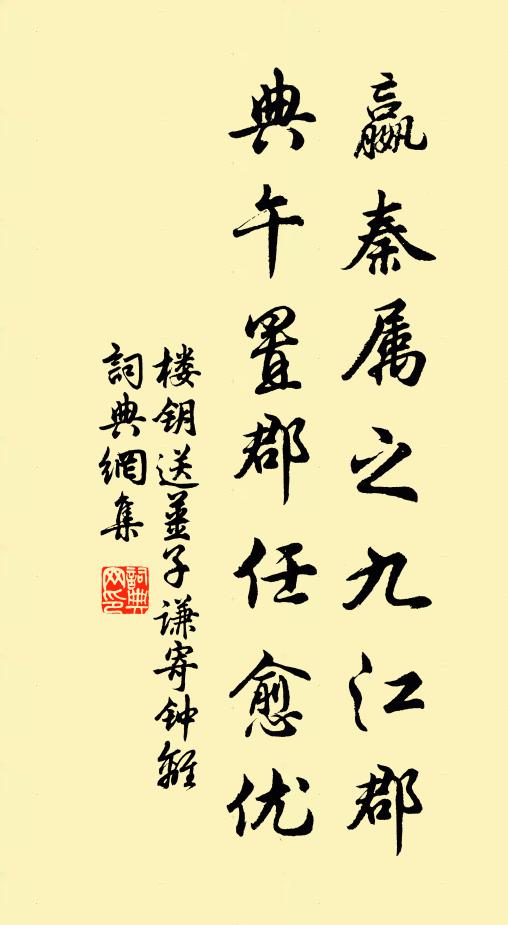 嬴秦属之九江郡
典午置郡任愈优
楼钥送姜子谦寄钟離
詞典網集
詞典网印